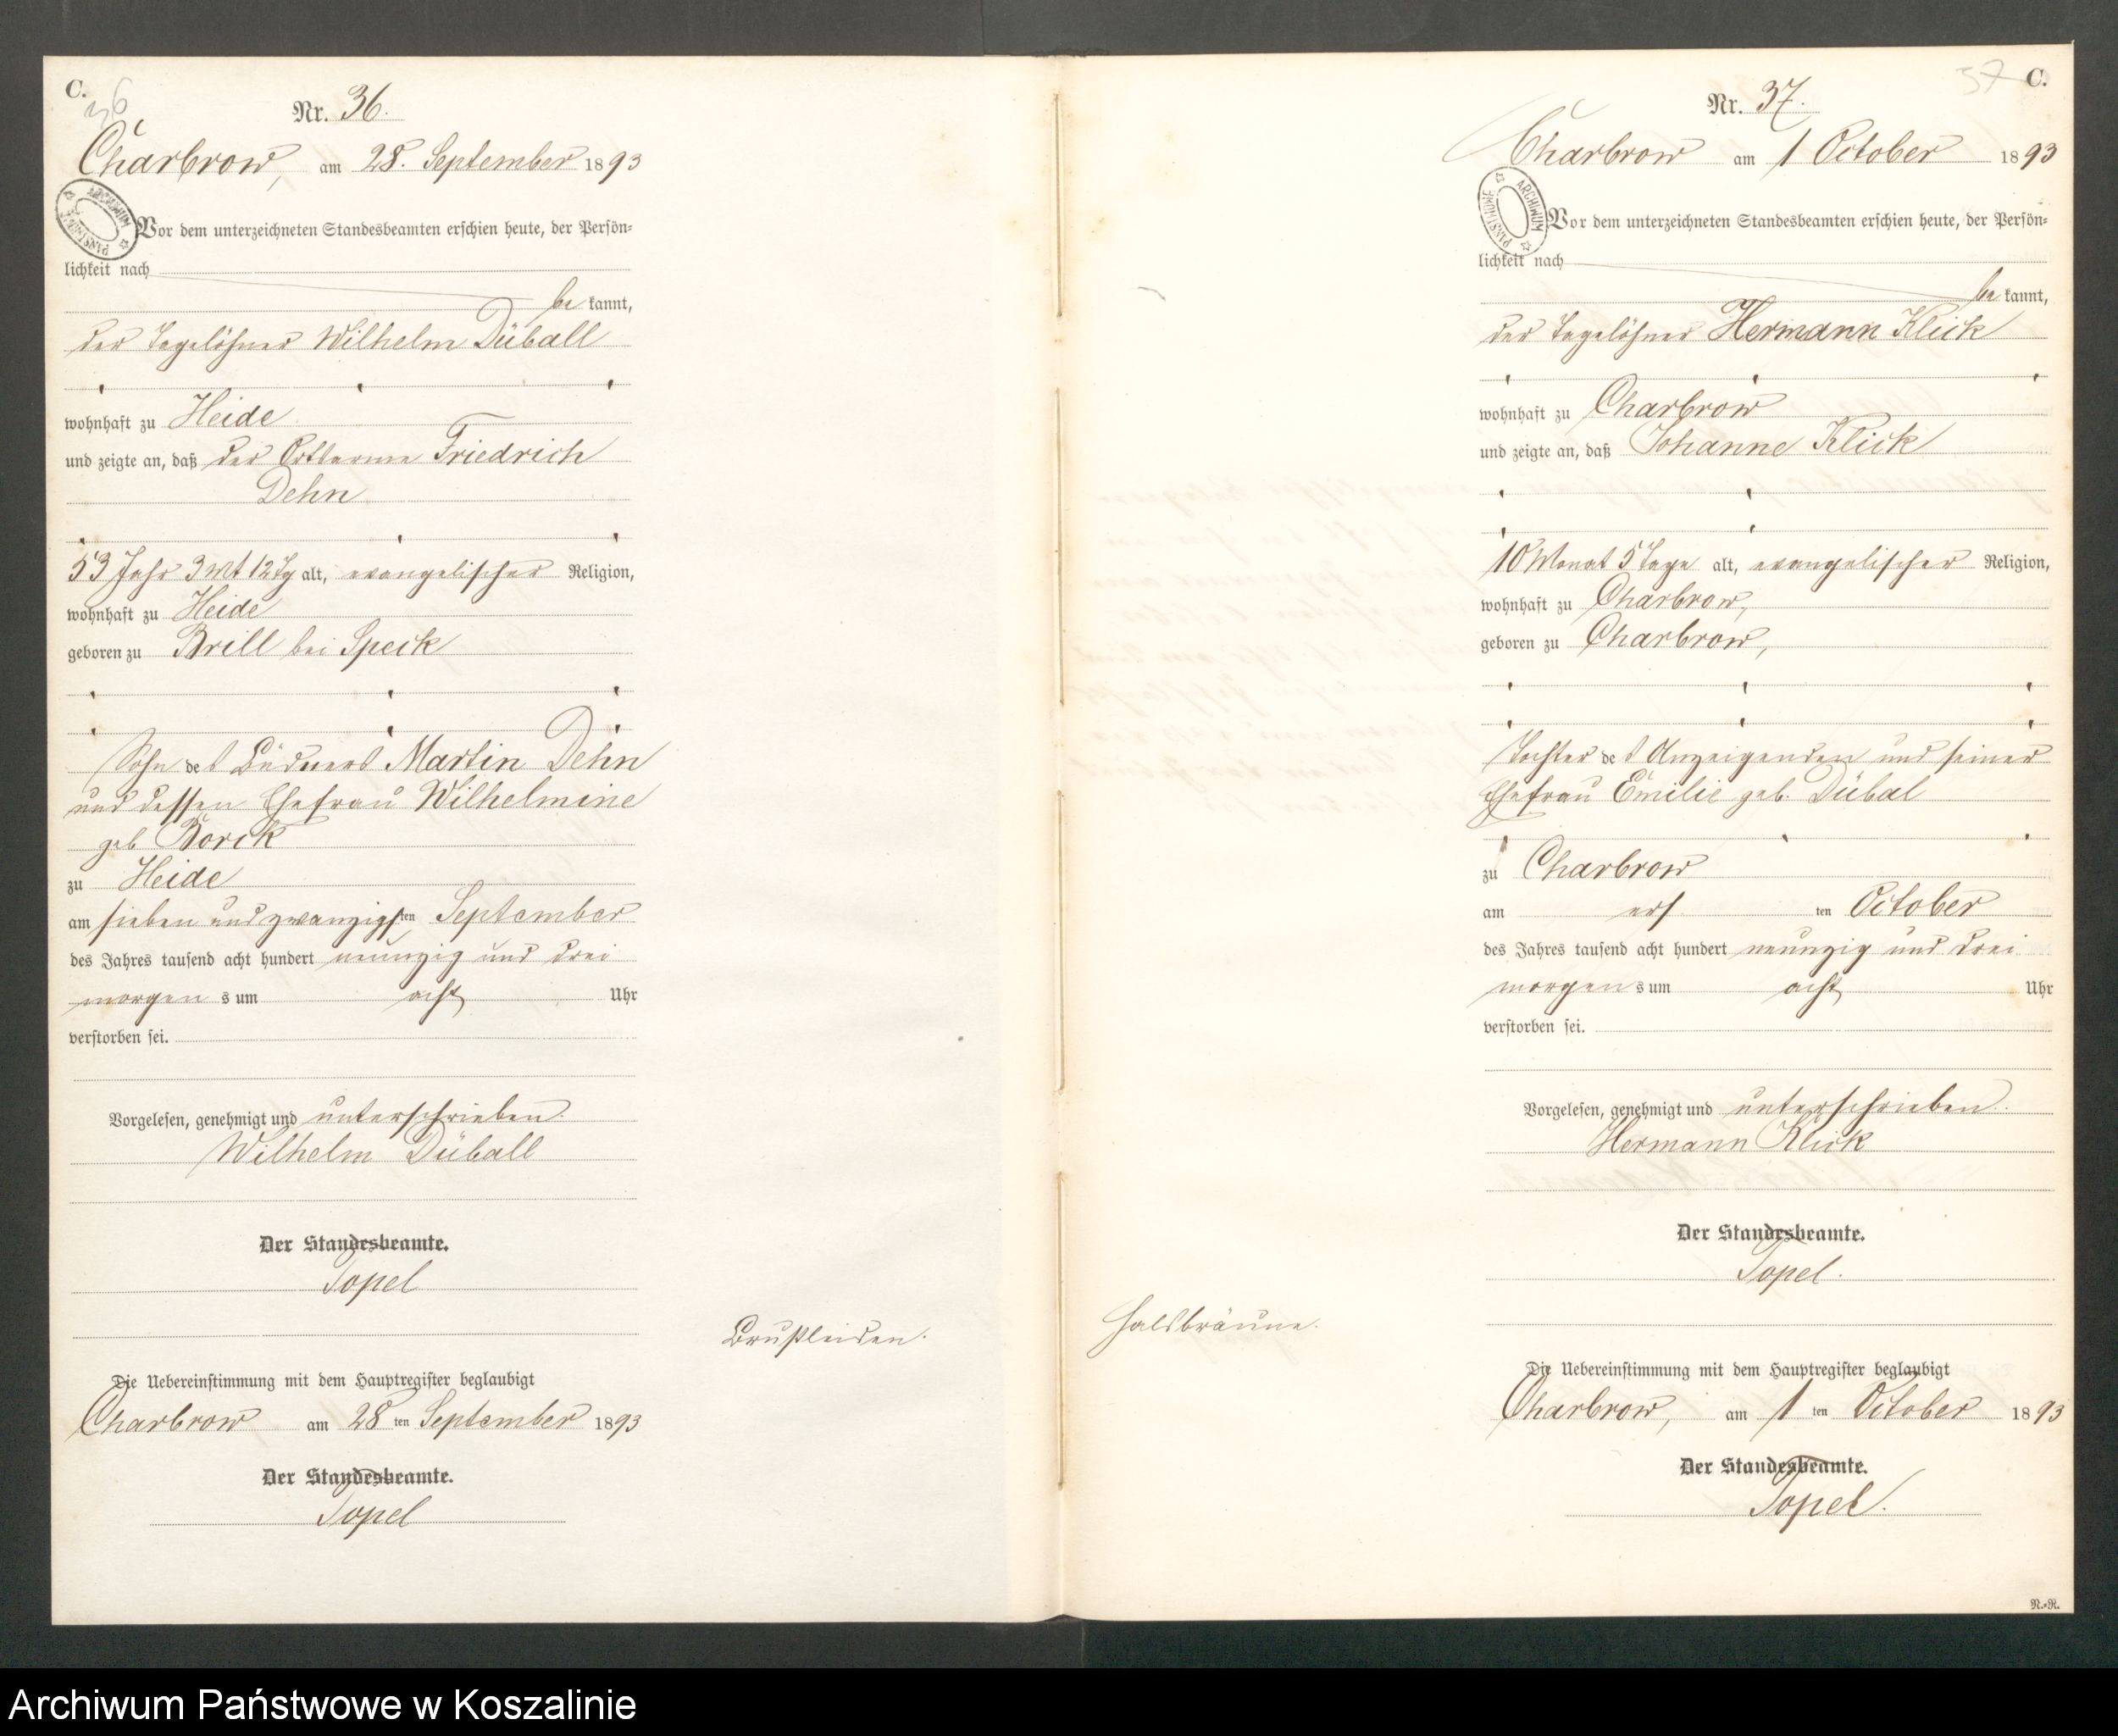 C.
36
Nr. 36.
Charbrow, am 28. September 1893
ARCHIWUM PAŃSTWOWE
Vor dem unterzeichneten Standesbeamten erschien heute, der Persön-
lichkeit nach
be kannt,
der Tagelöhner Wilhelm Düball
wohnhaft zu Heide
und zeigte an, daß der Ortsarme Friedrich
Dehn
53 Jahr 3 Mt 12 Tg alt, evangelischer Religion,
wohnhaft zu Heide
geboren zu Brill bei Speck
Sohn des Büdners Martin Dehn
und dessen Ehefrau Wilhelmine
geb Borck
zu Heide
am sieben und zwanzigsten September
des Jahres tausend acht hundert neunzig und drei
morgens um acht Uhr
verstorben sei.
Vorgelesen, genehmigt und unterschrieben.
Wilhelm Düball
Der Standesbeamte.
Topel
Brustleiden.
Die Uebereinstimmung mit dem Hauptregister beglaubigt
Charbrow am 28ten September 1893
Der Standesbeamte.
Topel
37
C.
Nr. 37.
Charbrow am 1 October 1893
ARCHIWUM PAŃSTWOWE
Vor dem unterzeichneten Standesbeamten erschien heute, der Persön-
lichkeit nach
be kannt,
der Tagelöhner Hermann Klick
wohnhaft zu Charbrow
und zeigte an, daß Johanne Klick
10 Monat 5 Tage alt, evangelischer Religion,
wohnhaft zu Charbrow,
geboren zu Charbrow,
Tochter des Anzeigenden und seiner
Ehefrau Emilie geb. Dübal
zu Charbrow
am ersten October
des Jahres tausend acht hundert neunzig und drei
morgens um acht Uhr
verstorben sei.
Vorgelesen, genehmigt und unterschrieben.
Hermann Klick
Der Standesbeamte.
Topel.
Halsbräune.
Die Uebereinstimmung mit dem Hauptregister beglaubigt
Charbrow, am 1ten October 1893
Der Standesbeamte.
Topel.
N.-R.
Archiwum Państwowe w Koszalinie